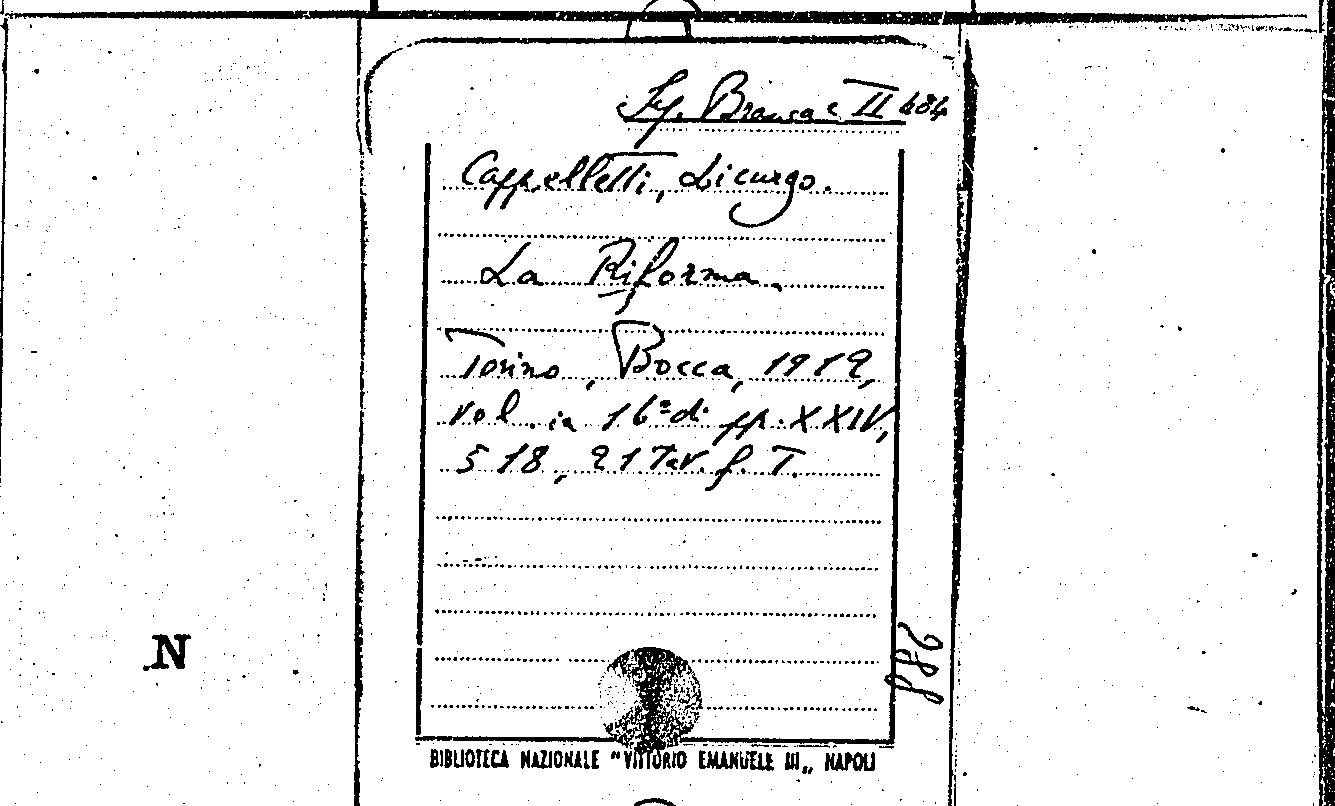 Sef. Brancac. II 484
Cappelletti, Licurgo.
La Riforma.
Torino, Bocca, 1912,
vol. in 16º di pp. XXIV,
518, 21 Tav. f. T.
288
N
BIBLIOTECA NAZIONALE "VITTORIO EMANUELE III„ NAPOLI